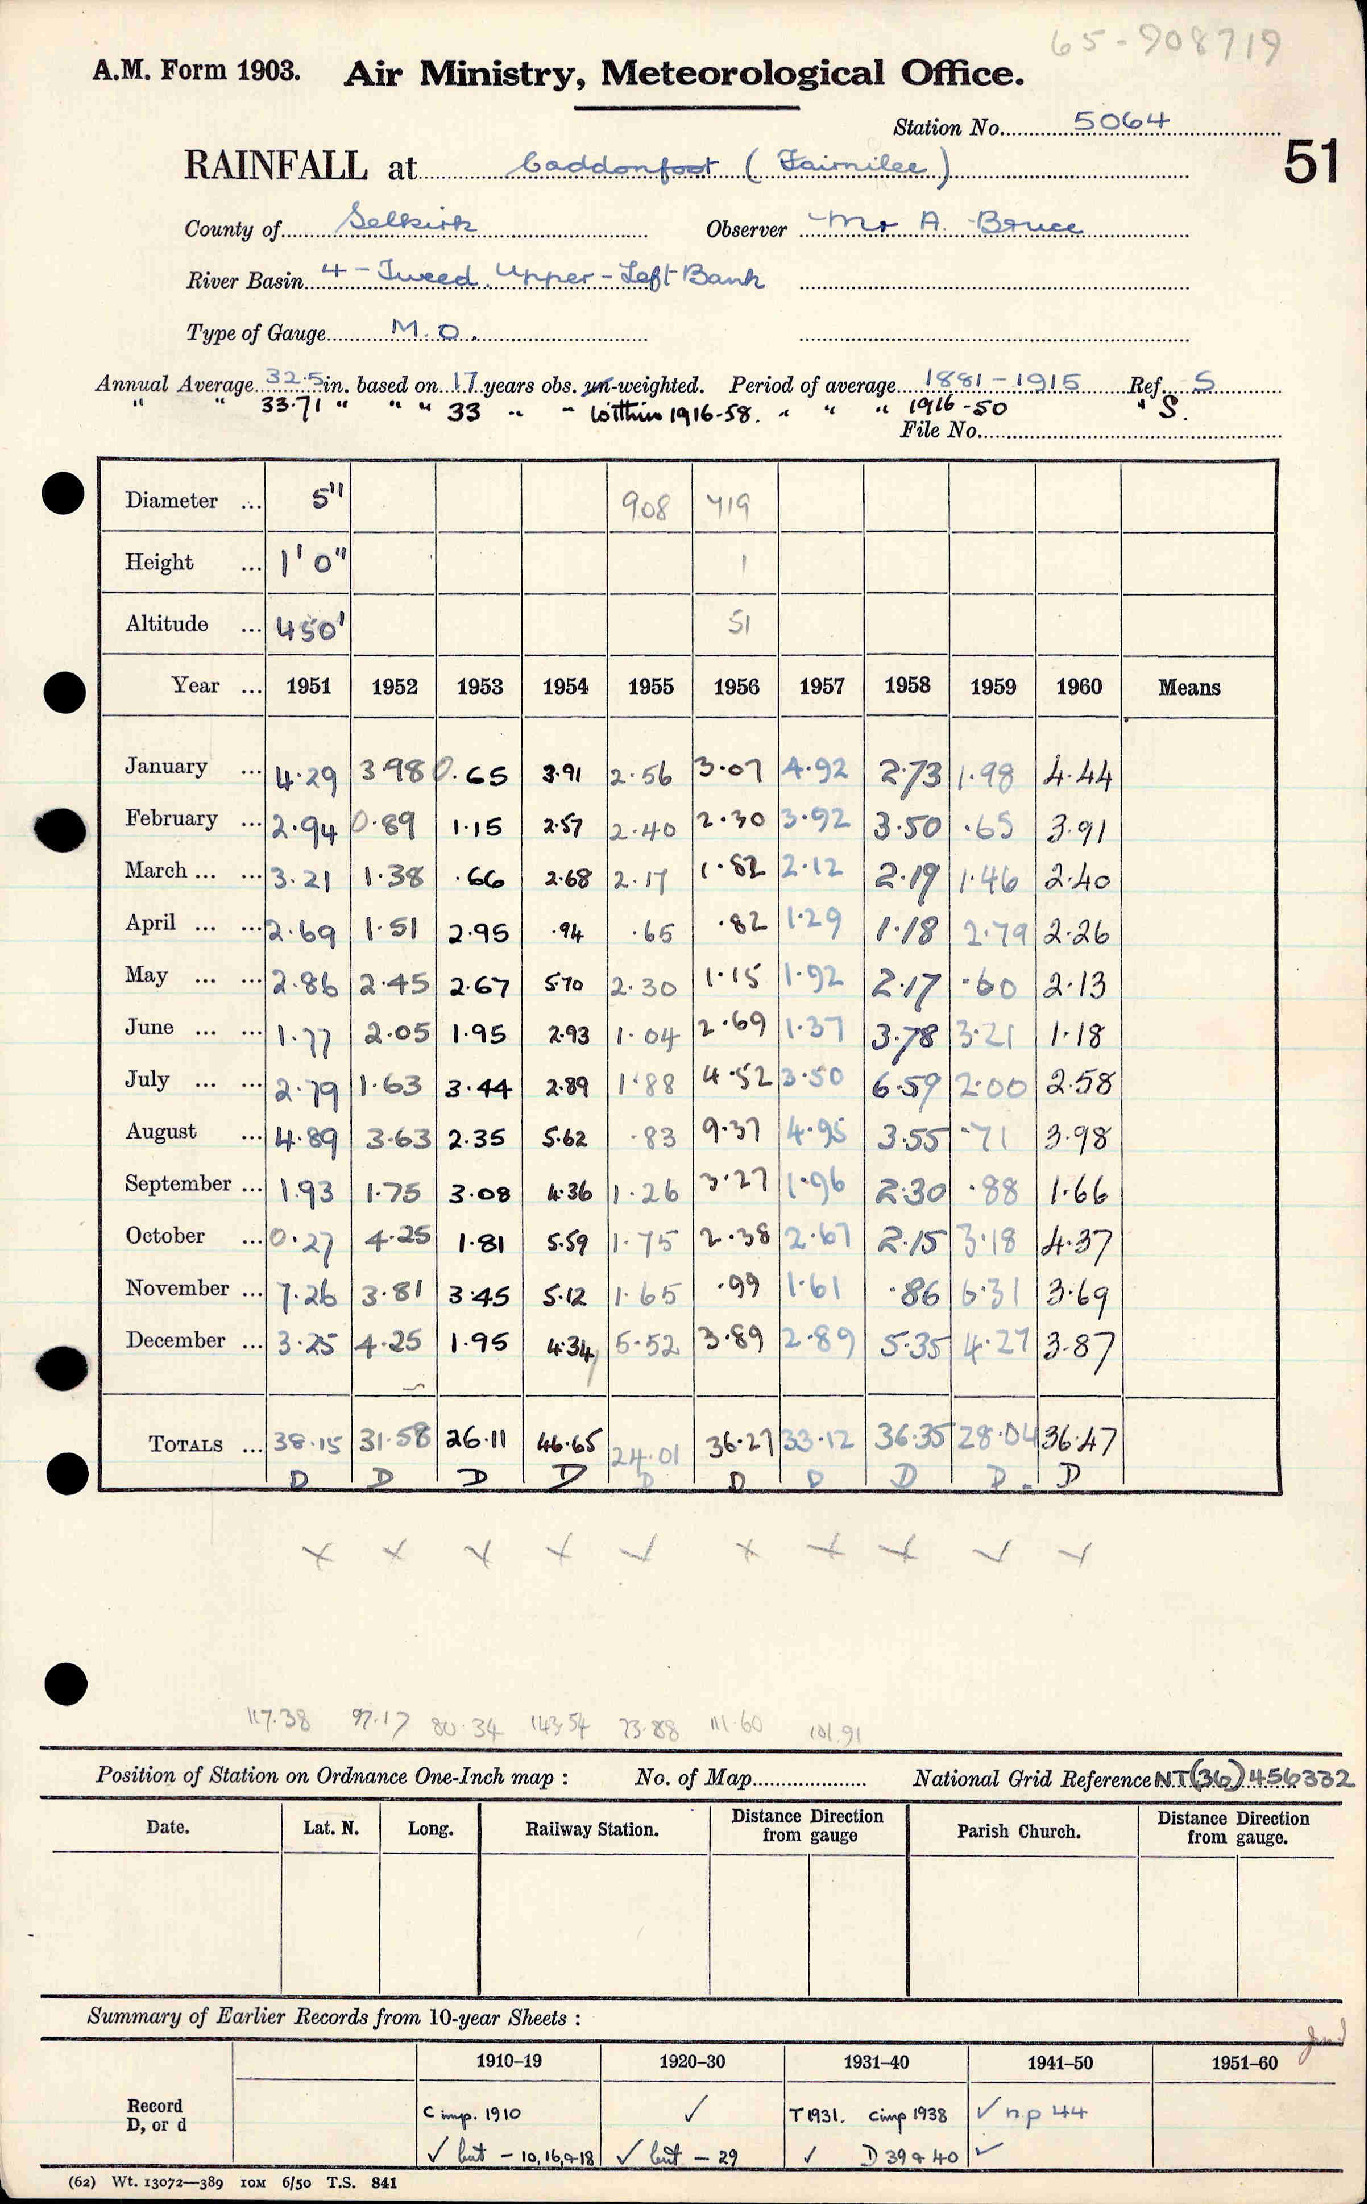 65-908719
A.M. Form 1903. Air Ministry, Meteorological Office.
Station No. 5064
51
RAINFALL at Caddonfoot (Fairnilee)
County of Selkirk Observer Mr A. Bruce
River Basin 4 - Tweed. Upper - Left Bank
Type of Gauge M.O.
Annual Average 32.5 in. based on 17 years obs. un-weighted. Period of average 1881-1915 Ref. S
" " 33.71 " " " 33 " " Within 1916-58. " " " 1916-50 " S.
File No.
Diameter ... 5" 908 719
Height ... 1' 0" 1
Altitude ... 450' 51
Year ... 1951 1952 1953 1954 1955 1956 1957 1958 1959 1960 Means
January ... 4.29 3.98 0.65 3.91 2.56 3.07 4.92 2.73 1.98 4.44
February ... 2.94 0.89 1.15 2.57 2.40 2.30 3.92 3.50 .65 3.91
March ... ... 3.21 1.38 .66 2.68 2.17 1.82 2.12 2.19 1.46 2.40
April ... ... 2.69 1.51 2.95 .94 .65 .82 1.29 1.18 2.79 2.26
May ... ... 2.86 2.45 2.67 5.70 2.30 1.15 1.92 2.17 .60 2.13
June ... ... 1.77 2.05 1.95 2.93 1.04 2.69 1.37 3.78 3.21 1.18
July ... ... 2.79 1.63 3.44 2.89 1.88 4.52 3.50 6.59 2.00 2.58
August ... 4.89 3.63 2.35 5.62 .83 9.37 4.95 3.55 .71 3.98
September ... 1.93 1.75 3.08 4.36 1.26 3.27 1.96 2.30 .88 1.66
October ... 0.27 4.25 1.81 5.59 1.75 2.38 2.67 2.15 3.18 4.37
November ... 7.26 3.81 3.45 5.12 1.65 .99 1.61 .86 6.31 3.69
December ... 3.25 4.25 1.95 4.34 5.52 3.89 2.89 5.35 4.27 3.87
TOTALS ... 38.15 31.58 26.11 46.65 24.01 36.27 33.12 36.35 28.04 36.47
D D D D D D D D D. D
117.38 97.17 80.34 143.54 73.88 111.60 101.91
Position of Station on Ordnance One-Inch map : No. of Map National Grid Reference NT(36)456332
Date. Lat. N. Long. Railway Station. Distance Direction from gauge Parish Church. Distance Direction from gauge.
Summary of Earlier Records from 10-year Sheets :
1910-19 1920-30 1931-40 1941-50 1951-60
Record D, or d C imp. 1910 ✓ T 1931. C imp 1938 ✓ n p 44
✓ but - 10, 16, & 18 ✓ but - 29 ✓ D 39 & 40 ✓
(62) Wt. 13072—389 10M 6/50 T.S. 841